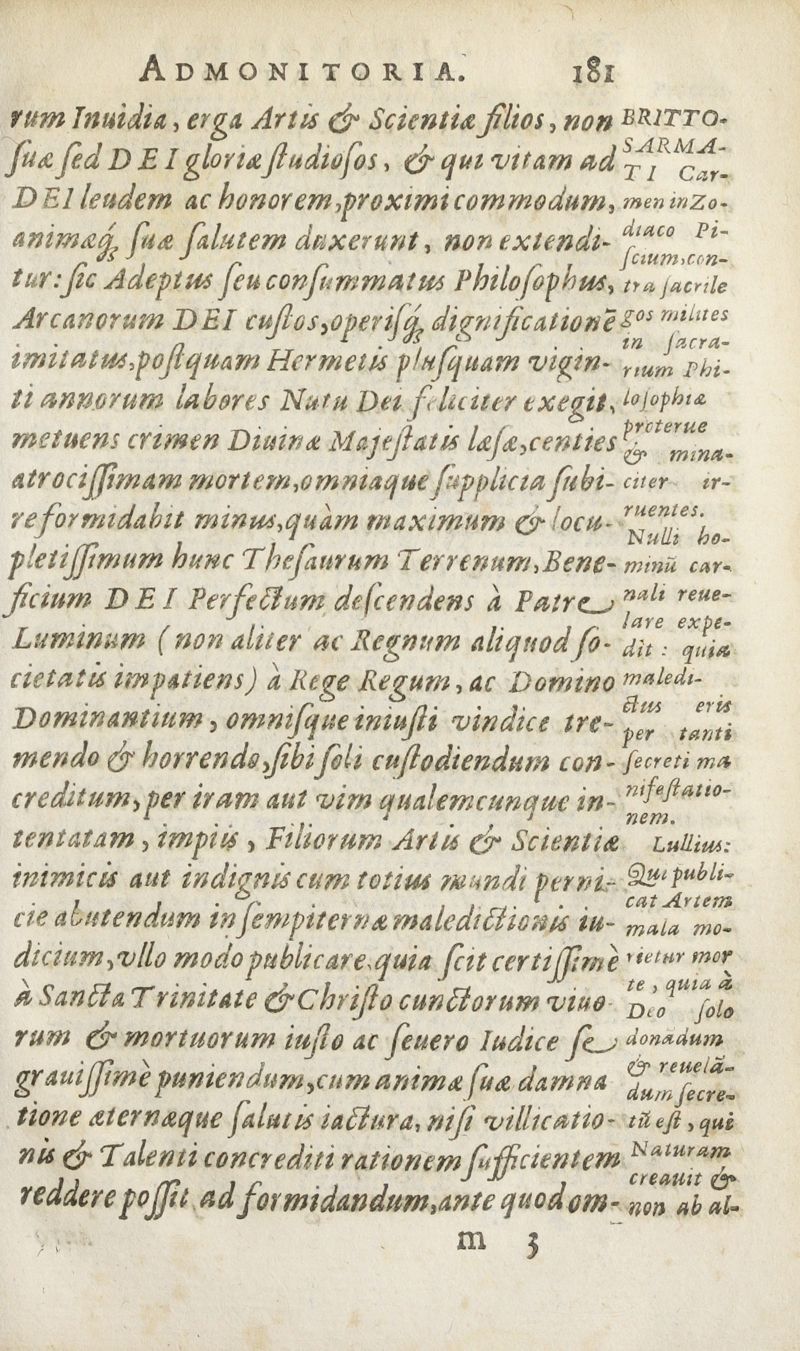 ADMONITORIA. 181
rum Inuidia, erga Artis & Scientiæ filios, non
suæ sed DEI gloriæ studiosos, & qui vitam ad
DEI leudem ac honorem, proximi commodum,
animæq́; suæ salutem duxerunt, non extendi-
tur: sic Adeptus seu consummatus Philosophus,
Arcanorum DEI custos, operisq́; dignificationē
imitatus, postquam Hermetis plusquam vigin-
ti annorum labores Nutu Dei feliciter exegit,
metuens crimen Diuinæ Majestatis læsæ, centies
atrocissimam mortem, omniaque supplicia subi-
reformidabit minus, quàm maximum & locu-
pletissimum hunc Thesaurum Terrenum, Bene-
ficium DEI Perfectum descendens à Patre
Luminum (non aliter ac Regnum aliquod so-
cietatis impatiens) à Rege Regum, ac Domino
Dominantium, omnisque iniusti vindice tre-
mendo & horrendo, sibi soli custodiendum con-
creditum, per iram aut vim qualemcunque in-
tentatam, impiis, Filiorum Artis & Scientiæ
inimicis aut indignis cum totius mundi perni-
cie abutendum in sempiternæ maledictionis iu-
dicium, vllo modo publicare, quia scit certissimè
à Sancta Trinitate & Christo cunctorum viuo
rum & mortuorum iusto ac seuero Iudice se
grauissimè puniendum, cum animæ suæ damna
tione æternæque salutis iactura, nisi villicatio-
nis & Talenti concrediti rationem sufficientem
reddere possit ad formidandum, ante quod om-
BRITTO-
SARMA-
TI Car-
men in Zo-
diaco Pi-
scium, con-
tra sacrile
gos milites
in sacra-
rium Phi-
losophiæ
proterue
& mina-
citer ir-
ruentes.
Nulli ho-
minū car-
nali reue-
lare expe-
dit : quia
maledi-
ctus eris
per tanti
secreti ma
nifestatio-
nem.
Lullius:
Qui publi-
cat Artem
mala mo-
rietur mor
te, quia à
Deo solo
donādum
& reuelā-
dum secre-
tū est, qui
Naturam
creauit &
non ab al-
m 3